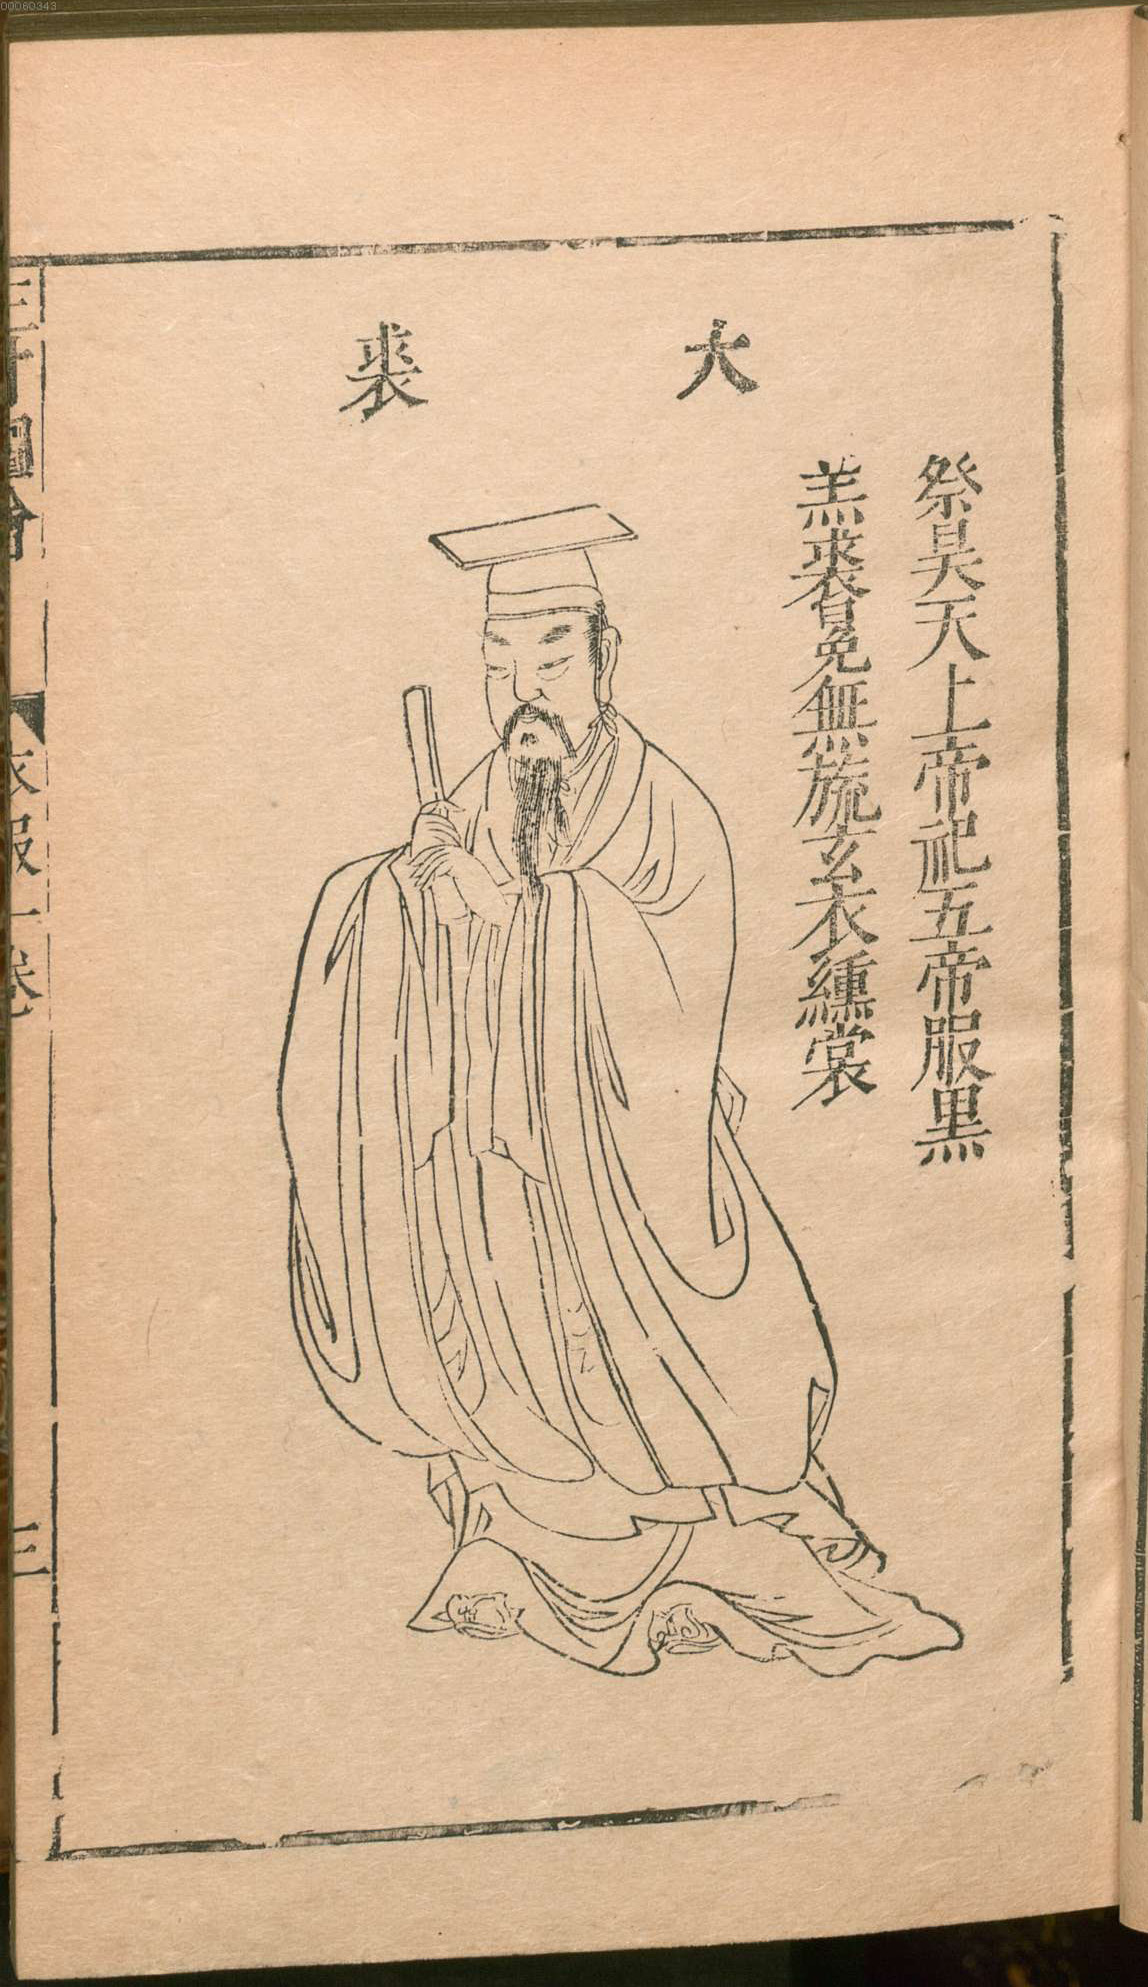 00060343
大裘
祭昊天上帝祀五帝服黑
羔裘冕無旒玄衣纁裳
三才圖會
衣服一卷
三